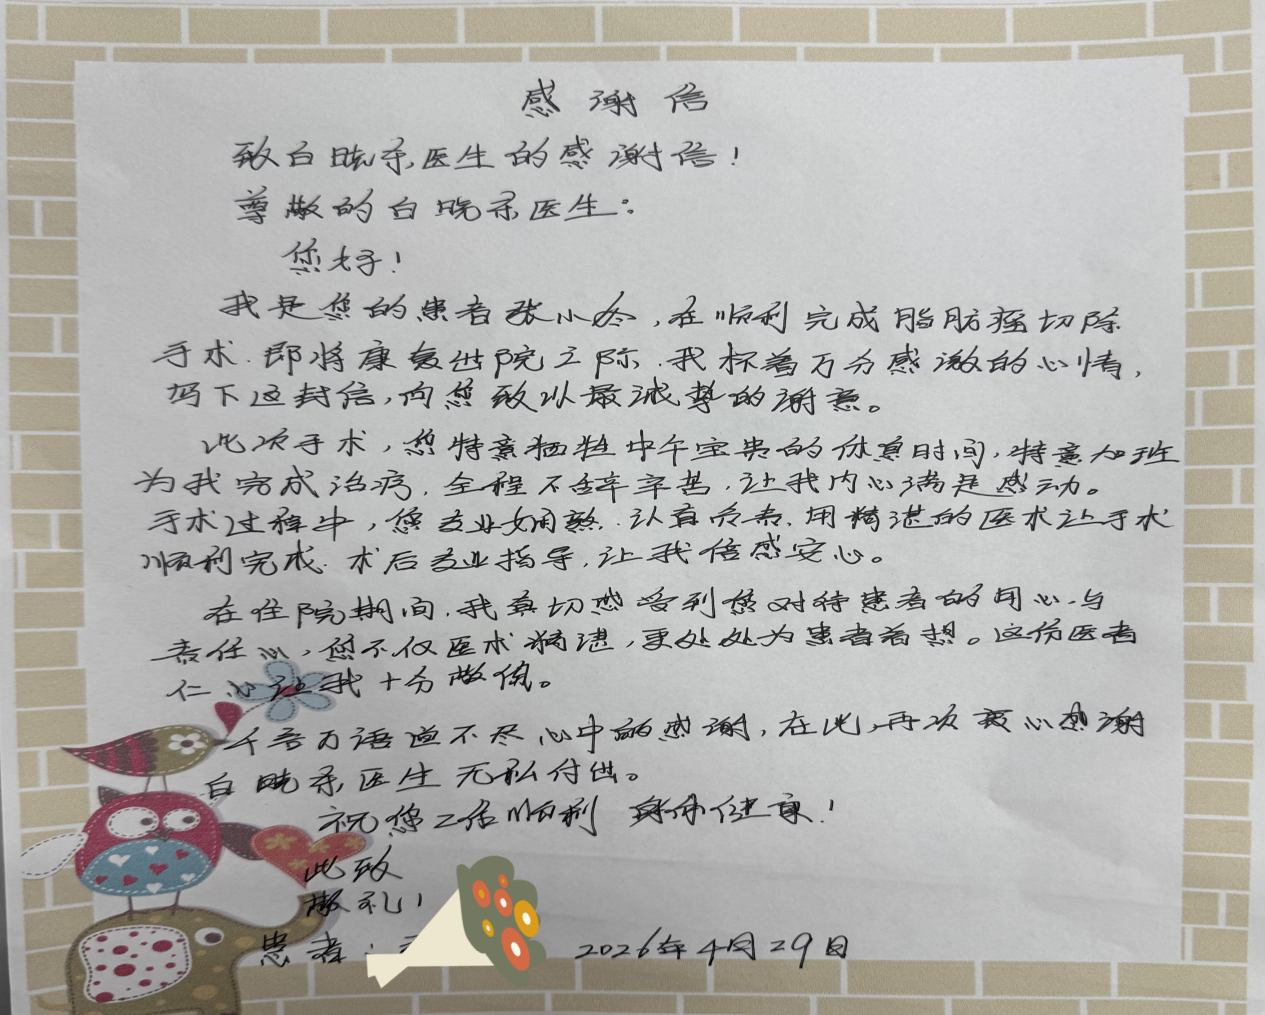 感谢信
致白晓柔医生的感谢信!
尊敬的白晓柔医生:
您好!
我是您的患者张小冬,在顺利完成脂肪瘤切除
手术.即将康复出院之际.我怀着万分感激的心情,
写下这封信,向您致以最诚挚的谢意。
此次手术,您特意牺牲中午宝贵的休息时间,特意加班
为我完成治疗.全程不辞辛苦.让我内心满是感动。
手术过程中,您专业娴熟.认真负责.用精湛的医术让手术
顺利完成.术后专业指导,让我倍感安心。
在住院期间.我真切感受到您对待患者的用心与
责任心,您不仅医术精湛,更处处为患者着想。这份医者
仁心让我十分敬佩。
千言万语道不尽心中的感谢,在此,再次衷心感谢
白晓柔医生无私付出。
祝您工作顺利 身体健康!
此致
敬礼!
患者: 2026年4月29日